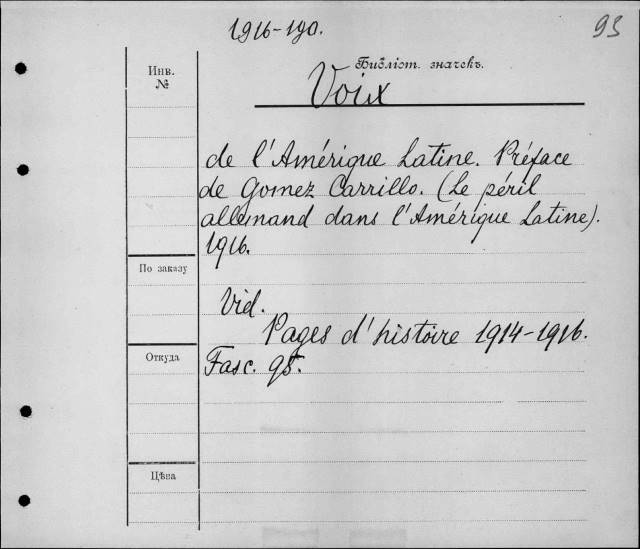 1916-190.
93
Инв.
№
Библіот. значекъ.
Voix
de l'Amérique Latine. Préface
de Gomez Carrillo. (Le péril
allemand dans l'Amérique Latine).
1916.
По заказу
Vid.
Pages d'histoire 1914-1916.
Откуда
Fasc. 95.
Цѣна